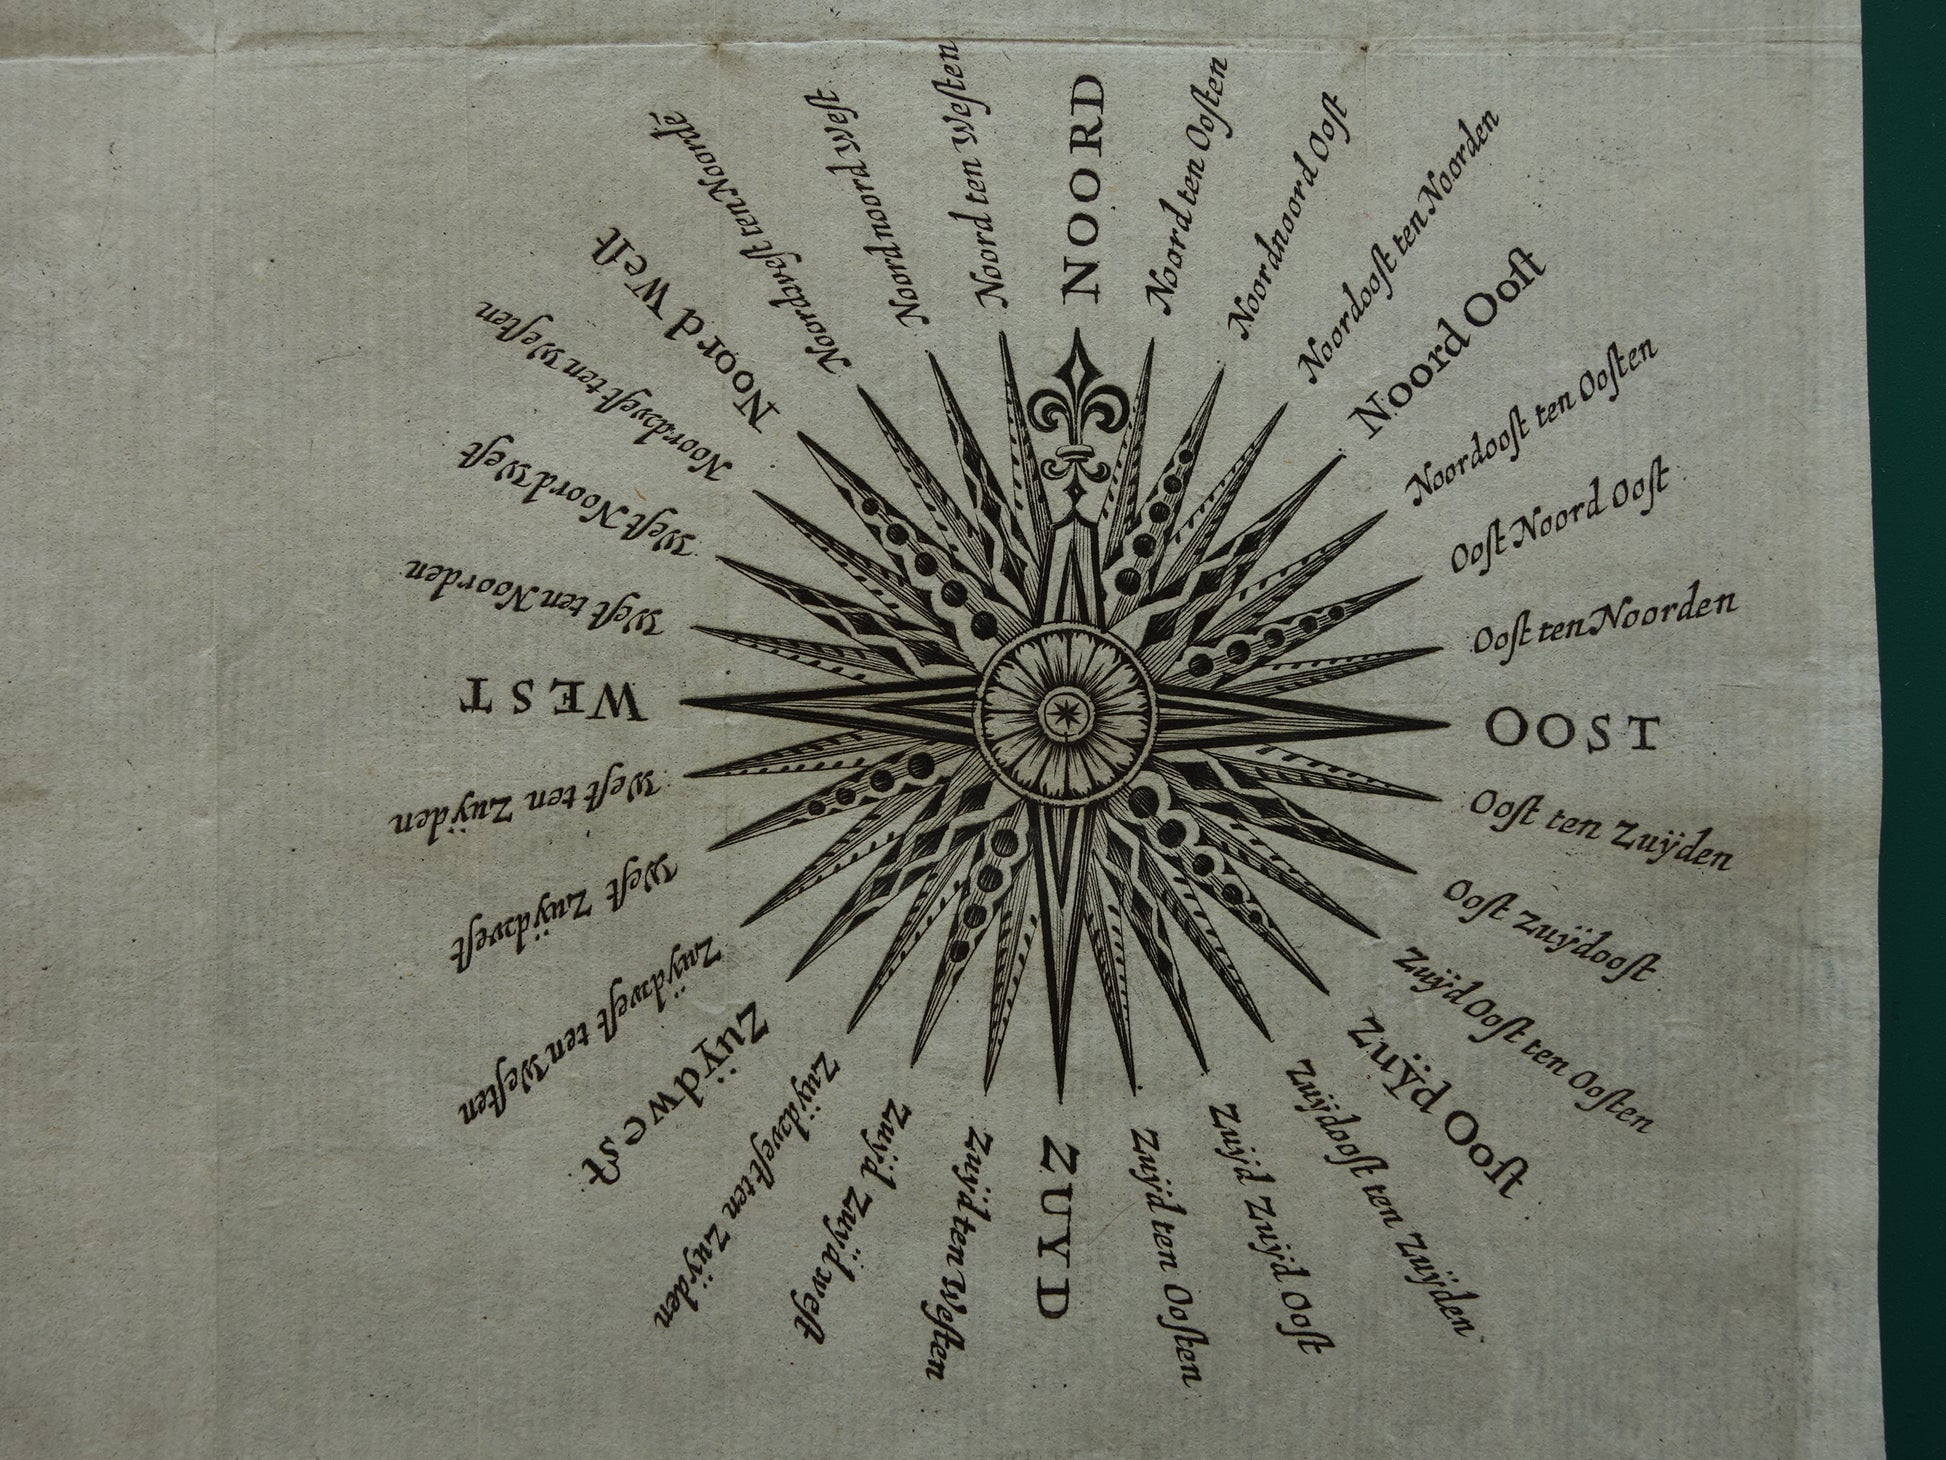 NOORD
Noord ten Ooſten
Noordnoord Ooſt
Noordooſt ten Noorden
Noord Ooſt
Noordooſt ten Ooſten
Ooſt Noord Ooſt
Ooſt ten Noorden
OOST
Ooſt ten Zuÿden
Ooſt Zuÿdooſt
Zuÿd Ooſt ten Ooſten
Zuÿd Ooſt
Zuÿdooſt ten Zuÿden
Zuÿd Zuÿd Ooſt
Zuÿd ten Ooſten
ZUYD
Zuÿd ten Weſten
Zuÿd Zuÿdweſt
Zuÿdweſt ten Zuÿden
Zuÿdweſt
Zuÿdweſt ten Weſten
Weſt Zuÿdweſt
Weſt ten Zuÿden
WEST
Weſt ten Noorden
Weſt Noordweſt
Noordweſt ten Weſten
Noord Weſt
Noordweſt ten Noordē
Noordnoord Weſt
Noord ten Weſten